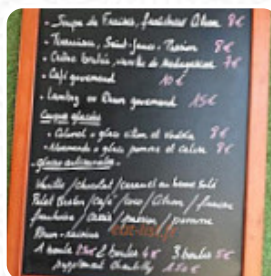 - Soupe de Fraises, fraîcheur Citron 8€
- Tiramisu, Saint-James - Passion 8€
- Crème brûlée, vanille de Madagascar 7€
- Café gourmand 10€
- Lambig ou Rhum gourmand 15€
Coupes glacées
- Colonel = glace citron et Vodka 8€
- Normande = glace pomme et calva 8€
- glaces artisanales -
Vanille / chocolat / caramel au beurre salé
Palet Breton / café / coco / Citron / fraise
framboise / cassis / passion / pomme
Rhum-raisins
1 boule 2 boules 4€ 3 boules 5€
supplément Chantilly